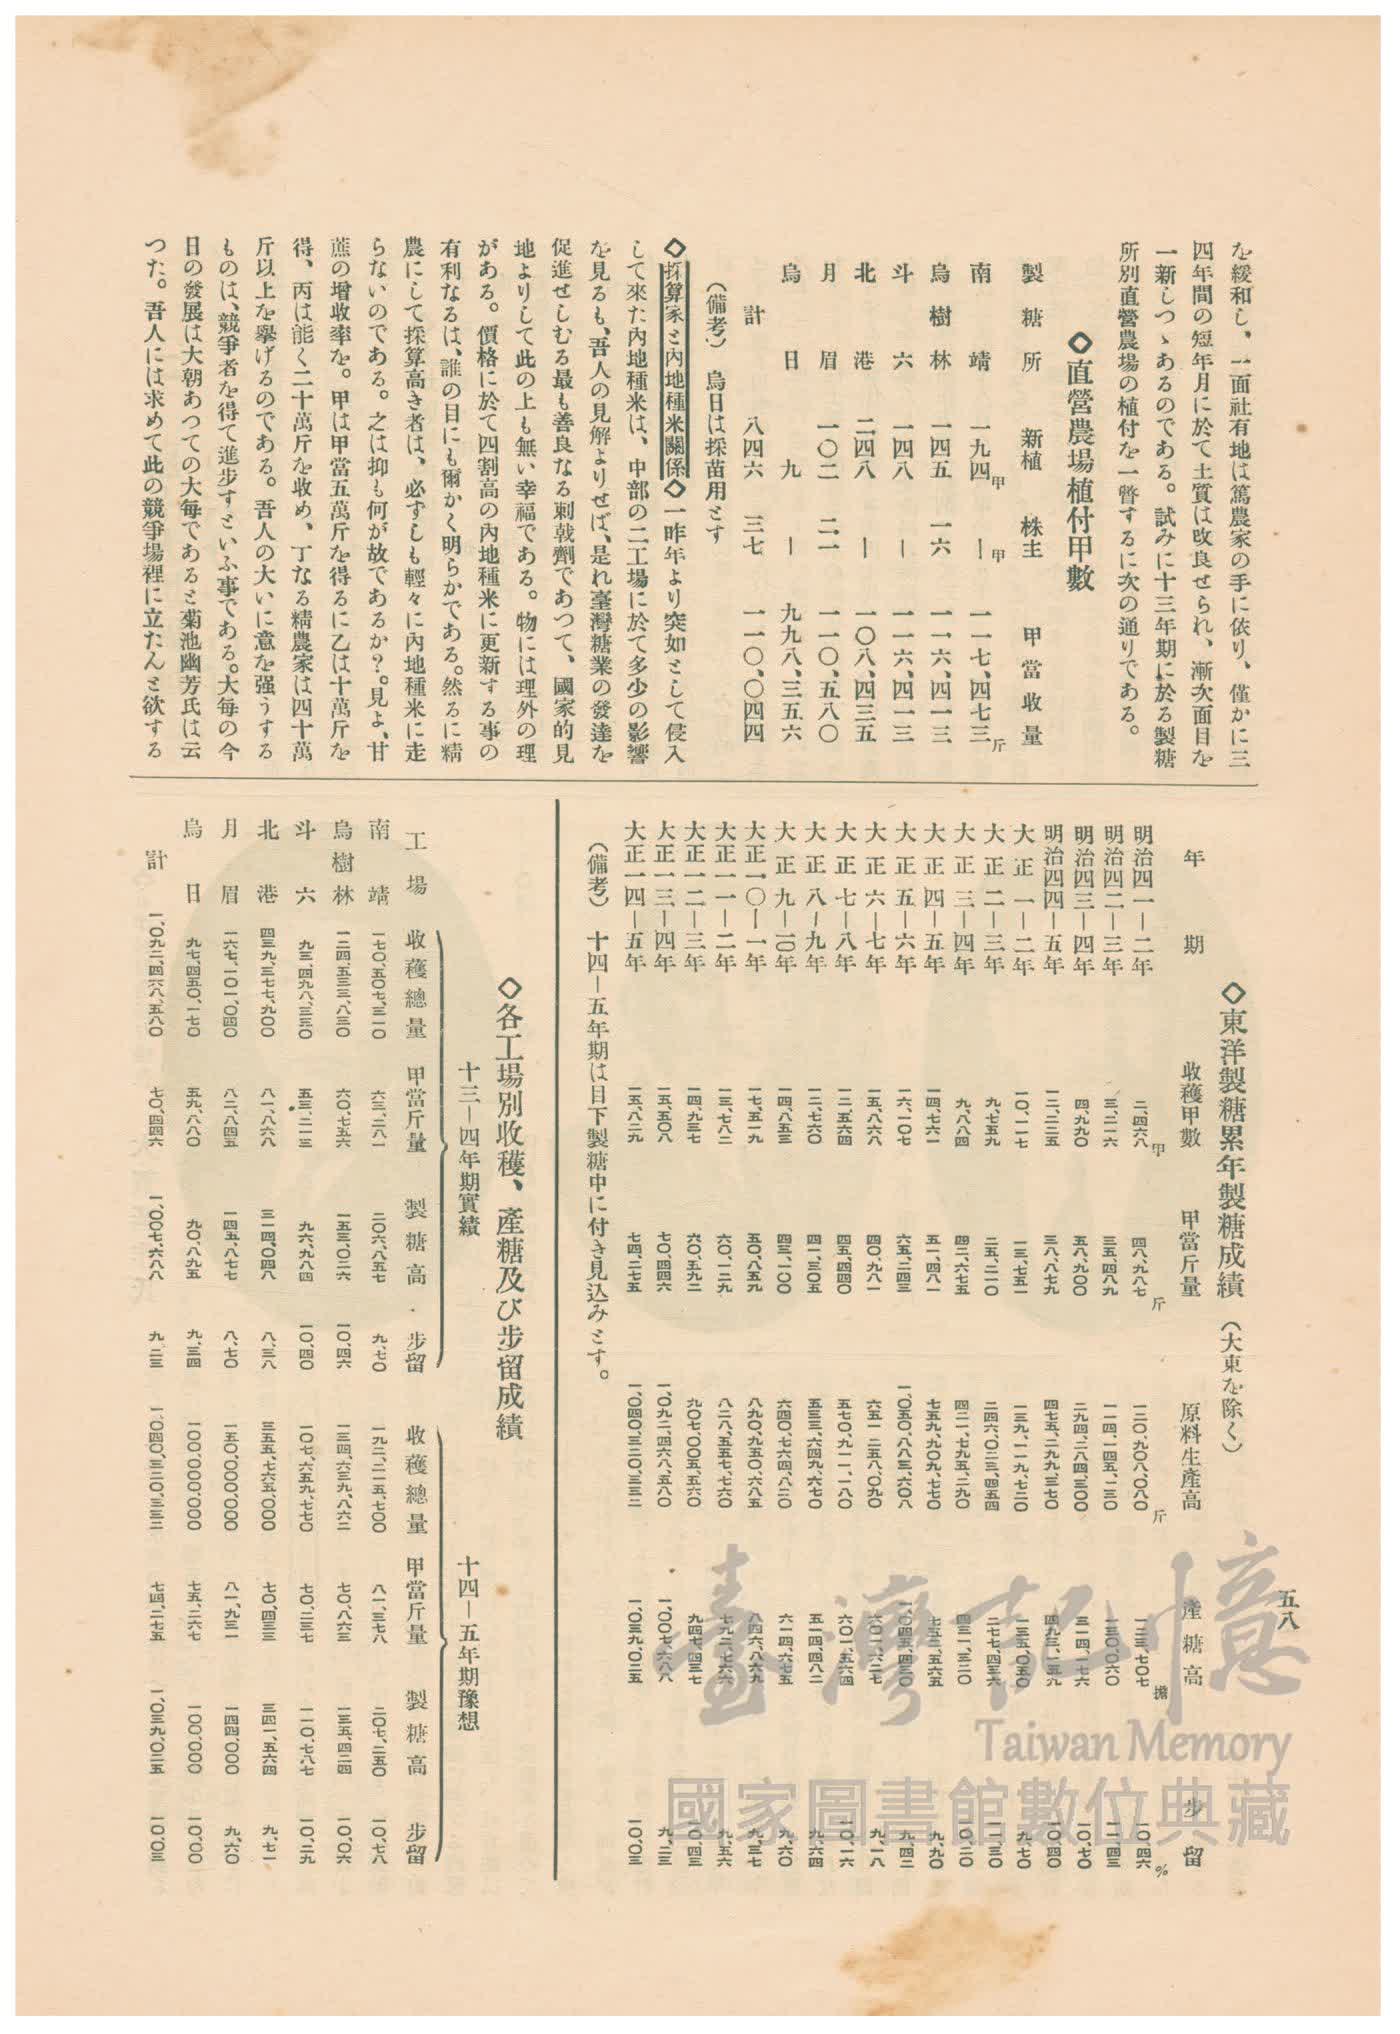 五八
を緩和し、一面社有地は篤農家の手に依り、僅かに三
四年間の短年月に於て土質は改良せられ、漸次面目を
一新しつゝあるのである。試みに十三年期に於る製糖
所別直營農場の植付を一瞥するに次の通りである。
◇直營農場植付甲數
製糖所 新植 株圭 甲當收量
南靖 一九四甲 ー甲 一一七、四七三斤
烏樹林 一四五 一六 一一六、四一三
斗六 一四八 ー 一一六、四一三
北港 二四八 ー 一〇八、四三五
月眉 一〇二 二一 一一〇、五八〇
烏日 九 ー 九九八、三五六
計 八四六 三七 一一〇、〇四四
（備考） 烏日は採苗用とす
◇採算家と內地種米關係◇一昨年より突如として侵入
して來た內地種米は、中部の二工場に於て多少の影響
を見るも、吾人の見解よりせば、是れ臺灣糖業の發達を
促進せしむる最も善良なる刺戟劑であつて、國家的見
地よりして此の上も無い幸福である。物には理外の理
がある。價格に於て四割高の內地種米に更新する事の
有利なるは、誰の目にも爾かく明らかである。然るに精
農にして採算高き者は、必ずしも輕々に內地種米に走
らないのである。之は抑も何が故であるか？。見よ、甘
蔗の增收率を。甲は甲當五萬斤を得るに乙は十萬斤を
得、丙は能く二十萬斤を收め、丁なる精農家は四十萬
斤以上を擧げるのである。吾人の大いに意を强うする
ものは、競爭者を得て進步すといふ事である。大每の今
日の發展は大朝あつての大每であると菊池幽芳氏は云
つた。吾人には求めて此の競爭場裡に立たんと欲する
◇東洋製糖累年製糖成績（大東を除く）
年期 收穫甲數 甲當斤量 原料生產高 產糖高 步留
明治四一ー二年 二、四六八甲 四八、九八七斤 一二〇、九〇八、〇八〇斤 一二三、七〇七擔 一〇、四六%
明治四二ー三年 三、二一六 三五、四八九 一一四、一四五、一三〇 一三〇、〇六〇 一一、四三
明治四三ー四年 四、九九〇 五八、九〇〇 二九四、二八四、三〇〇 三一四、一七六 一〇、七〇
明治四四ー五年 一二、二二五 三八、八七九 四七五、二九九、三七〇 四九三、一五九 一〇、四〇
大正一ー二年 一〇、一一七 一三、七五一 一三九、一一九、七二〇 一三五、〇五〇 九、七〇
大正二ー三年 九、七五九 二五、二一〇 二四六、〇二三、四五四 二七七、四三六 一一、三〇
大正三ー四年 九、八八四 四二、六七五 四二一、七九五、二九〇 四三一、三二〇 一〇、二〇
大正四ー五年 一四、七六一 五一、四八一 七五九、九〇九、七七〇 七五二、五六五 九、九〇
大正五ー六年 一六、一〇七 六五、二四三 一、〇五〇、八八三、六〇八 一、〇四五、四三〇 九、四二
大正六ー七年 一五、八六八 四〇、九八一 六五一、二五八、〇九〇 六〇一、六二七 九、一八
大正七ー八年 一二、五六四 四五、四四〇 五七〇、九一一、一八〇 六〇一、五六四 一〇、一六
大正八ー九年 一二、七六〇 四一、三〇五 五三三、六四九、六七〇 五一四、四八二 九、六四
大正九ー一〇年 一四、八五三 四三、一〇〇 六四〇、七六四、八二〇 六一四、六七五 九、六〇
大正一〇ー一年 一七、五一九 五〇、八五九 八九〇、九五〇、六八五 八四六、八六九 九、三七
大正一一ー二年 一三、七八二 六〇、一二九 八二八、五五七、七六〇 七九二、七六六 九、五六
大正一二ー三年 一四、九三七 六〇、五九二 九〇七、〇〇五、五六〇 九四七、四三七 一〇、四三
大正一三ー四年 一五、五〇八 七〇、四四六 一、〇九二、四六八、五八〇 一、〇〇七、六八八 九、二三
大正一四ー五年 一五、八二九 七四、二七五 一、〇四〇、三二〇、三三二 一、〇三九、〇二五 一〇、〇三
（備考） 十四ー五年期は目下製糖中に付き見込みとす。
◇各工場別收穫、產糖及び步留成績
十三ー四年期實績 十四ー五年期豫想
工場 收穫總量 甲當斤量 製糖高 步留 收穫總量 甲當斤量 製糖高 步留
南靖 一七〇、五〇七、三一〇 六三、二八一 二〇六、八五七 九、七〇 一九二、二一五、七〇〇 八一、三七八 二〇七、二五〇 一〇、七八
烏樹林 一二四、五三三、八三〇 六〇、七五六 一五三、〇二六 一〇、四六 一三四、六三九、八六二 七〇、八六三 一三五、四二四 一〇、〇六
斗六 九三、四九八、三三〇 五三、二一三 九六、九八四 一〇、四〇 一〇七、六五九、七七〇 七〇、二三七 一一〇、七八七 一〇、二九
北港 四三九、三七七、九〇〇 八一、八六八 三一四、〇四八 八、三八 三五五、七六五、〇〇〇 七〇、四三三 三四一、五六四 九、七一
月眉 一六七、一〇一、〇四〇 八二、八四五 一四五、八七七 八、七〇 一五〇、〇〇〇、〇〇〇 八一、九三一 一四四、〇〇〇 九、六〇
烏日 九七、四五〇、一七〇 五九、八八〇 九〇、八九五 九、三四 一〇〇、〇〇〇、〇〇〇 七五、二六七 一〇〇、〇〇〇 一〇、〇〇
計 一、〇九二、四六八、五八〇 七〇、四四六 一、〇〇七、六八八 九、二三 一、〇四〇、三二〇、三三二 七四、二七五 一、〇三九、〇二五 一〇、〇三
臺灣記憶
Taiwan Memory
國家圖書館數位典藏